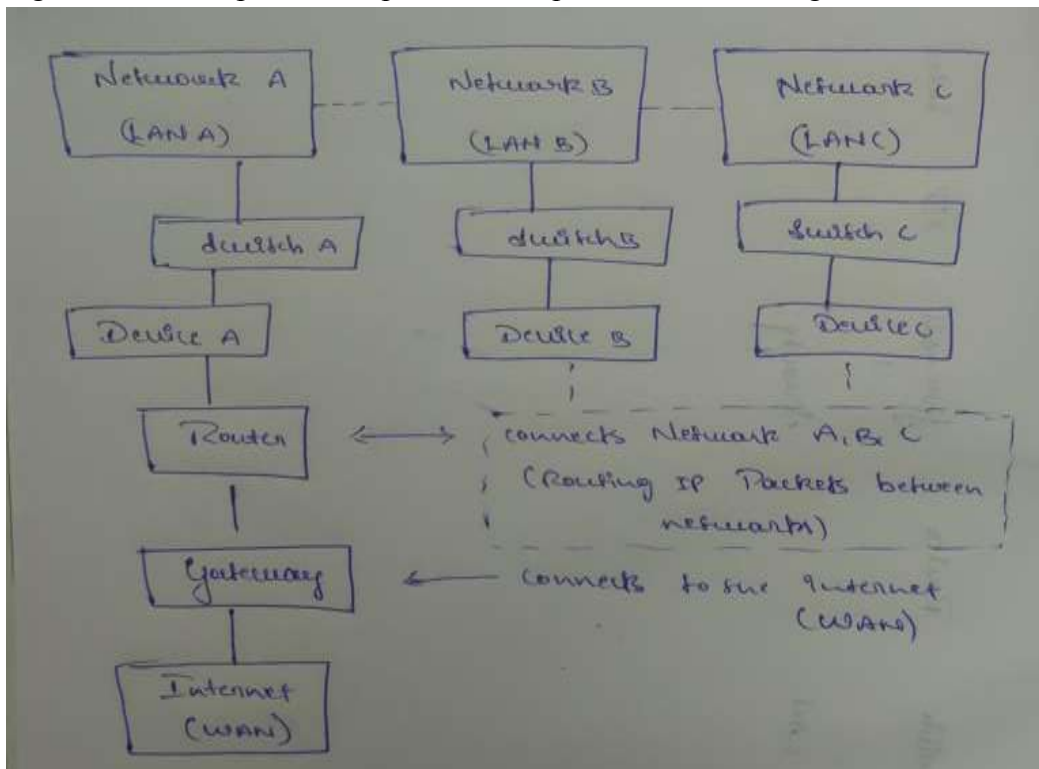 Network A
(LAN A)
Network B
(LAN B)
Network C
(LAN C)
Switch A
Switch B
Switch C
Device A
Device B
Device C
Router
connects Network A, B, C
(Routing IP Packets between
networks)
Gateway
connects to the Internet
(WAN)
Internet
(WAN)